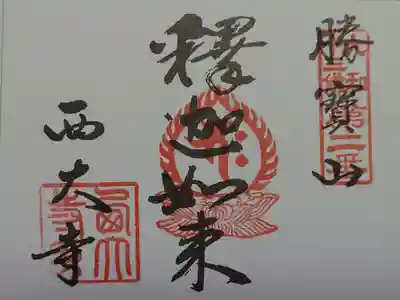 勝寶山
釋迦如来
西大寺